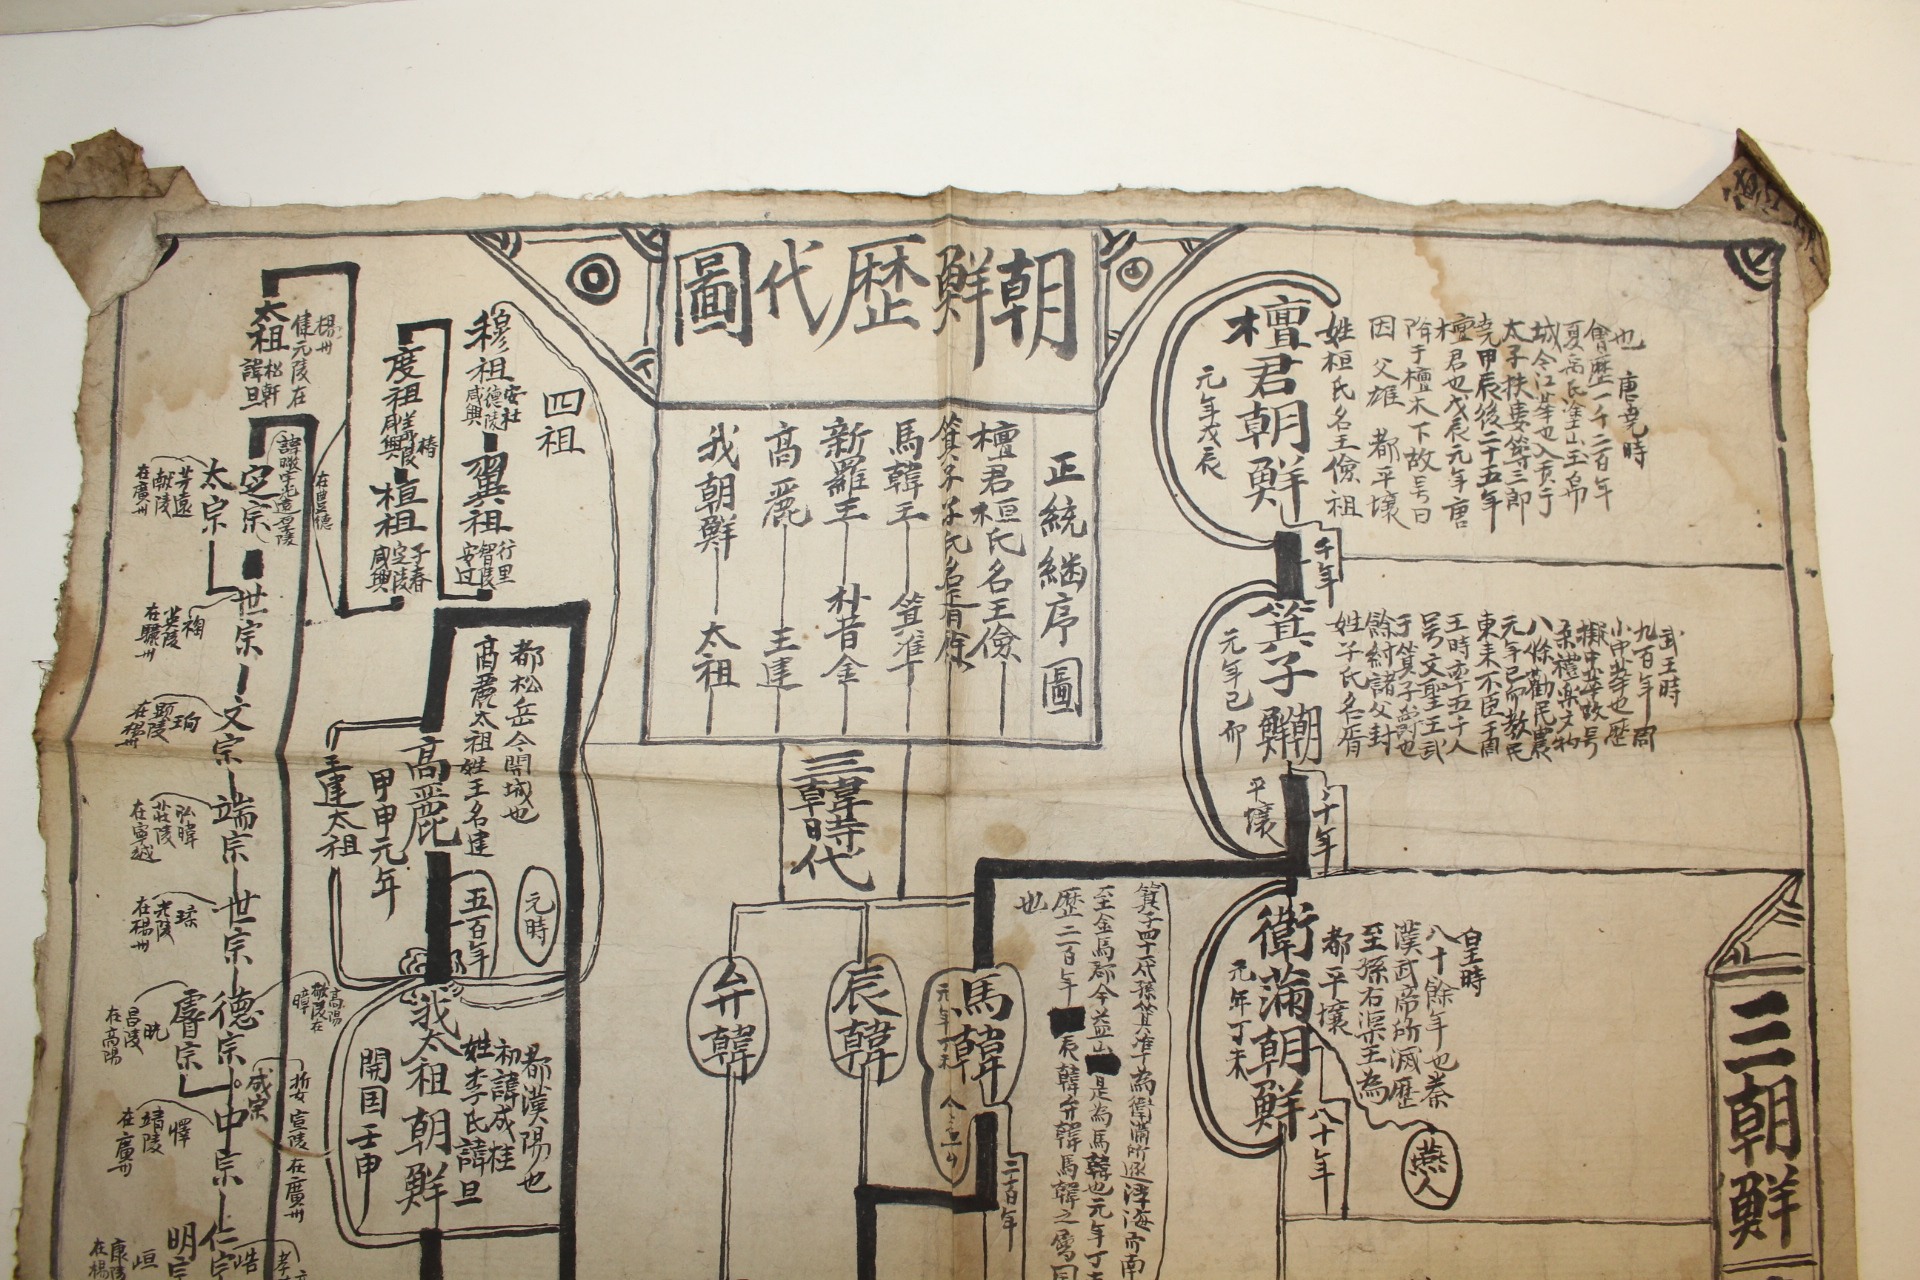 朝鮮歷代圖
正統継序圖
檀君桓氏名王儉
箕子子氏名胥餘
馬韓王 箕準
新羅王 朴昔金
高麗 王建
我朝鮮 太祖
三韓時代
弁韓
辰韓
馬韓
元年丁未
三朝鮮
檀君朝鮮
元年戊辰
唐堯時
也
會歷一千二百年
夏禹氏塗山玉帛
城今江華也入貢于
太子扶婁築三郎
堯甲辰後二十五年
檀君也戊辰元年唐
降于檀木下故号曰
因 父雄 都平壤
姓桓氏名王儉祖
千年
箕子朝鮮
元年己卯
平壤
武王時
九百年周
小中華也歷
擬中華改号
柔禮樂文物
八條勸民農
元年己卯教民
東来不臣于周
王時率五千人
号文聖王武
于箕子爵也
餘紂諸父封
姓子氏名胥
衛滿朝鮮
元年丁未
皇時
八十餘年也秦
漢武帝所滅歷
至孫右渠王為
都平壤
八十年
燕人
箕子四十代孫箕準為衛滿所逐浮海而南
至金馬郡今益山是為馬韓也元年丁未
歷二百年辰韓弁韓馬韓之
也
二百年
四祖
穆祖
安社
德陵
咸興
翼祖
行里
智陵
安辺
度祖
椿
義陵
咸興
桓祖
子春
定陵
咸興
都松岳今開城也
高麗太祖姓王名建
高麗
甲申元年
王建太祖
五百年
元時
我太祖朝鮮
都漢陽也
初諱成桂
姓李氏諱旦
開国壬申
太祖
楊州
健元陵在
松軒
諱旦
定宗
在豊德
太宗
芳遠
献陵
在廣州
世宗
祹
英陵
在驪州
文宗
珦
顕陵
在楊州
端宗
弘暐
莊陵
在寧越
世宗
瑈
光陵
在楊州
德宗
高陽
敬陵在
暲
睿宗
晄
昌陵
在高陽
成宗
宣陵
在廣州
中宗
懌
靖陵
在廣州
仁宗
峼
明宗
峘
康陵
在楊